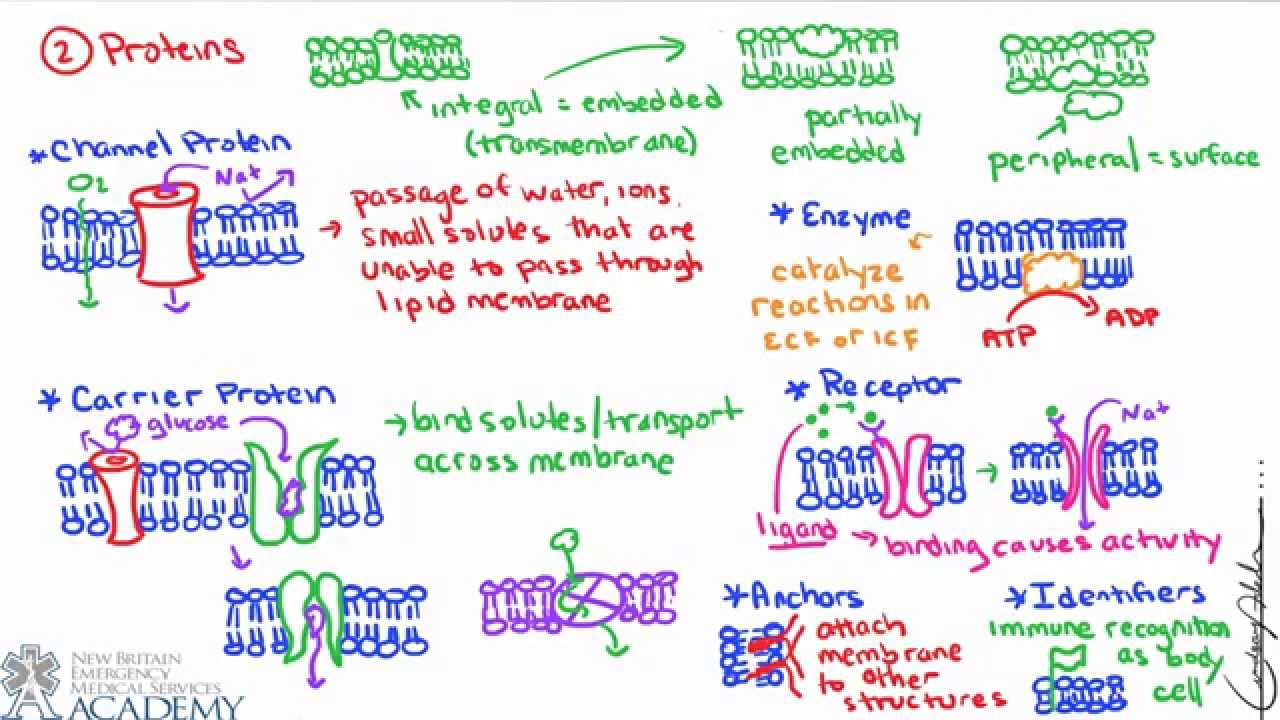 ② Proteins
integral = embedded
(transmembrane)
partially
embedded
peripheral = surface
*Channel Protein
O2
Na+
→ passage of water, ions,
small solutes that are
unable to pass through
lipid membrane
* Enzyme
catalyze
reactions in
ECF or ICF
ATP
ADP
* Carrier Protein
glucose
→ bind solutes/transport
across membrane
* Receptor
Na+
ligand → binding causes activity
*Anchors
attach
membrane
to other
structures
*Identifiers
immune recognition
as body
cell
NEW BRITAIN
EMERGENCY
MEDICAL SERVICES
ACADEMY